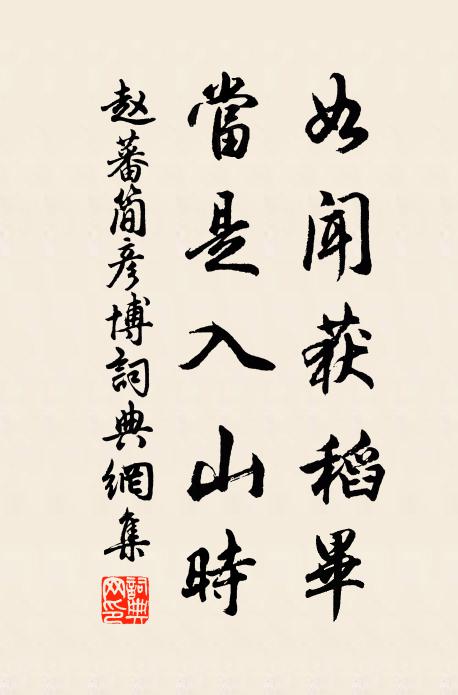 如闻获稻畢
當是入山時
赵蕃简彦博詞典網集
詞典网印